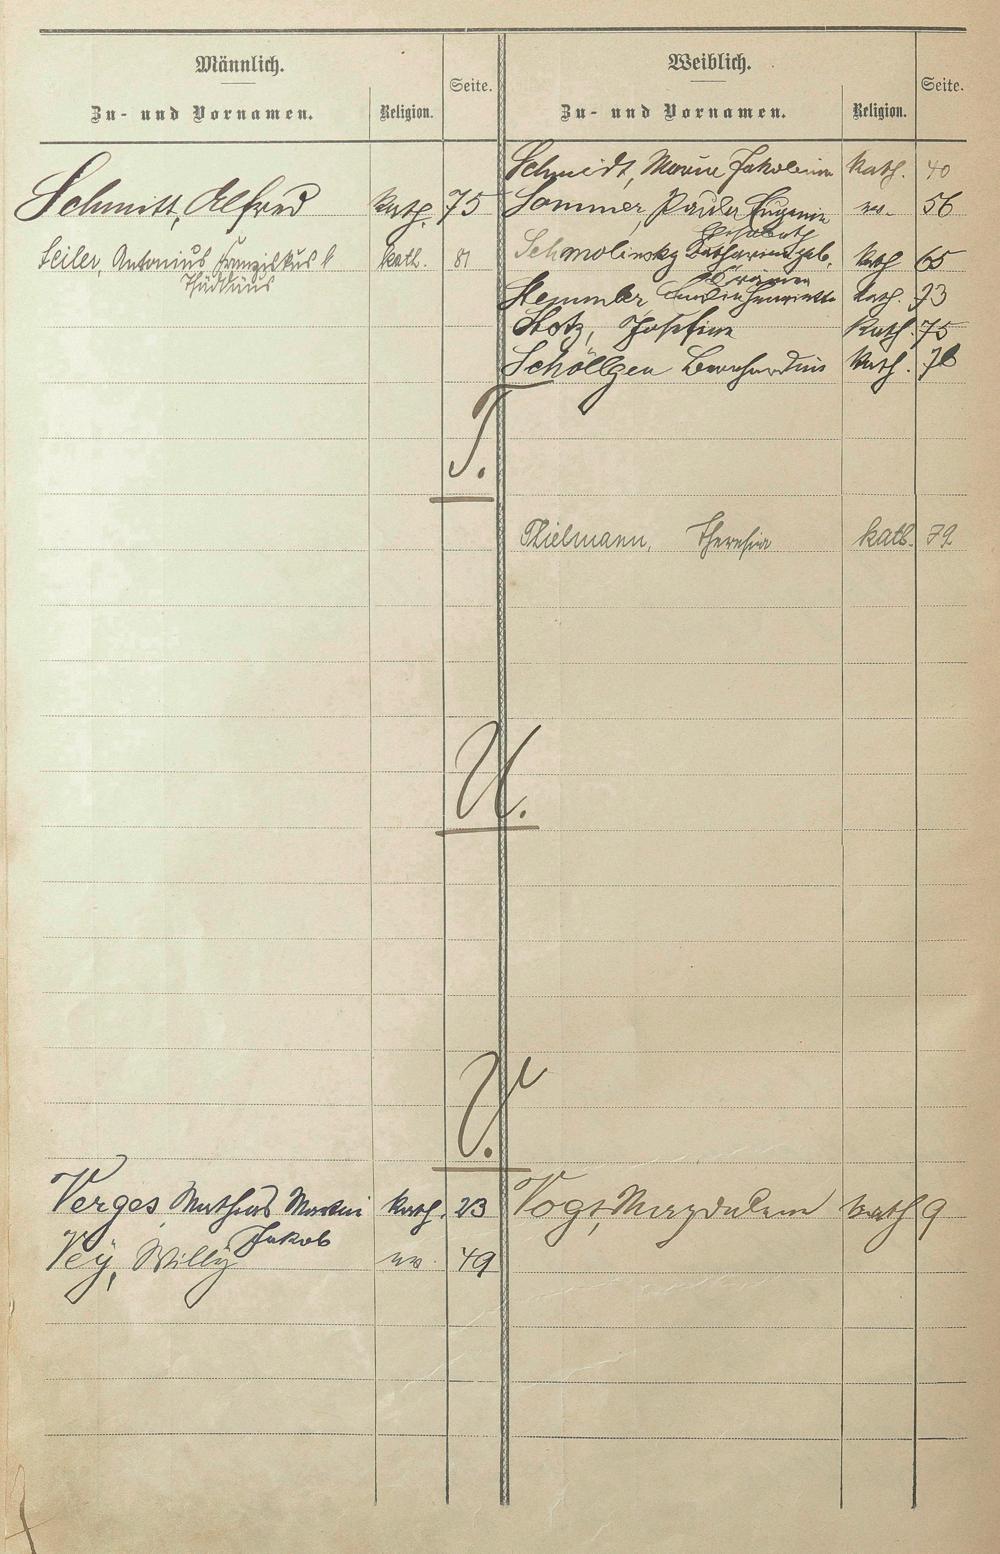 Männlich.
Zu- und Vornamen.
Religion.
Seite.
Weiblich.
Zu- und Vornamen.
Religion.
Seite.
Schmidt, Maria kath. 40
Schmitt, Alfred kath. 75
Sommer, Paula Eugenie ev. 56
Elisabeth
Seiler, Antonius Franziskus kath. 81
Thaddäus
Schmolinsky Katharina geb. kath 65
Stemmler Henriette kath. 73
Stotz, Josefine kath. 75
Schöllgen Bernhardine kath. 76
T.
Thielmann, Theresia kath. 79
U.
V.
Verges, Mathias Martin kath. 23
Jakob
Vogt, Magdalena kath 9
Vey, Willy ev. 49